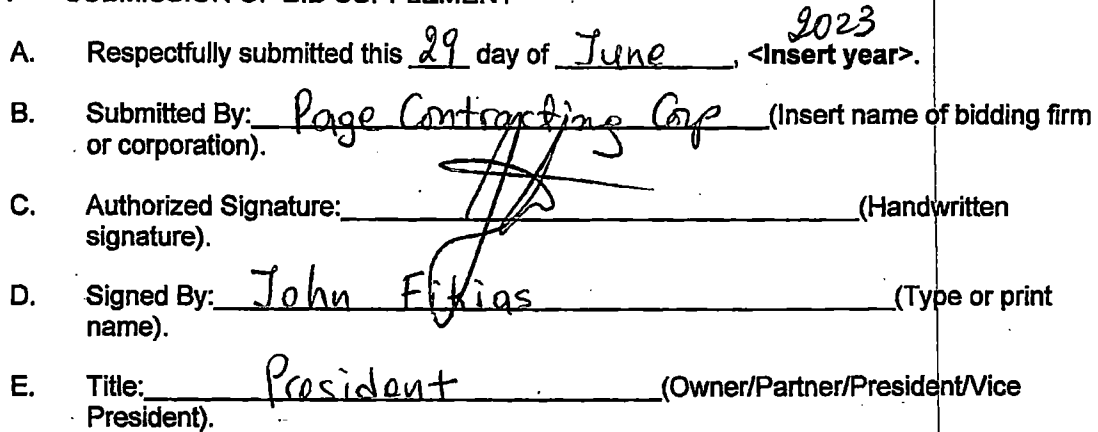 SUBMISSION OF BID SUPPLEMENT
2023
A. Respectfully submitted this 29 day of June, <Insert year>.
B. Submitted By: Page Contracting Corp (Insert name of bidding firm
or corporation).
C. Authorized Signature: (Handwritten
signature).
D. Signed By: John (Type or print
name).
E. Title: President (Owner/Partner/President/Vice
President).